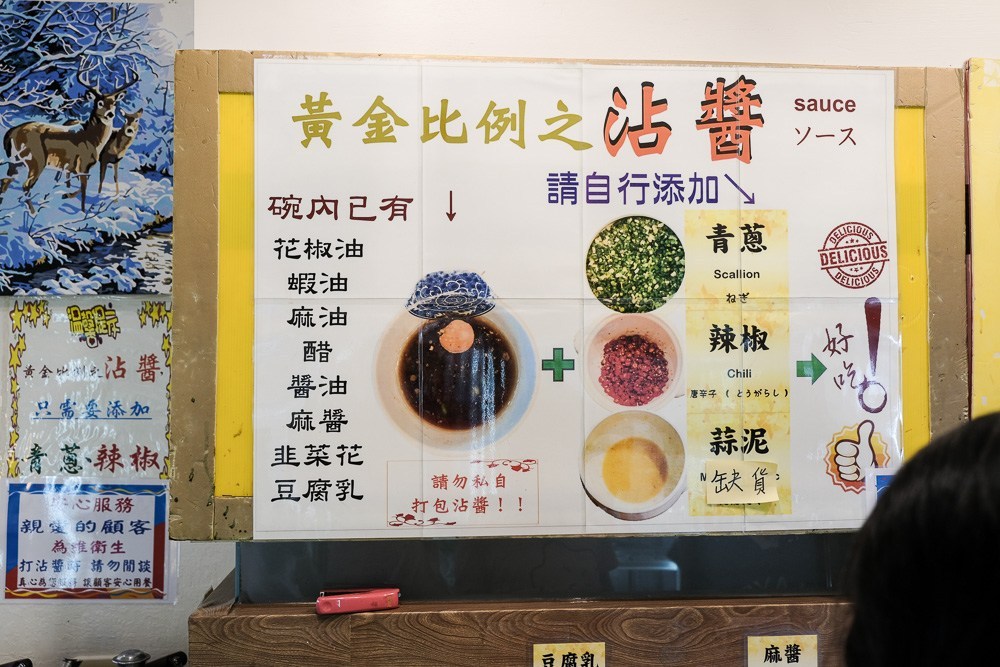 黃金比例之沾醬
sauce
ソース
請自行添加↘
碗內已有 ↓
花椒油
蝦油
麻油
醋
醬油
麻醬
韭菜花
豆腐乳
青蔥
Scallion
ねぎ
辣椒
Chili
唐辛子 (とうがらし)
蒜泥
缺貨
請勿私自
打包沾醬!!
DELICIOUS
DELICIOUS
DELICIOUS
好吃!
溫馨提示
沾醬
只需要添加
青蔥.辣椒
心服務
親愛的顧客
為維衛生
打沾醬時 請勿閒談
豆腐乳
麻醬